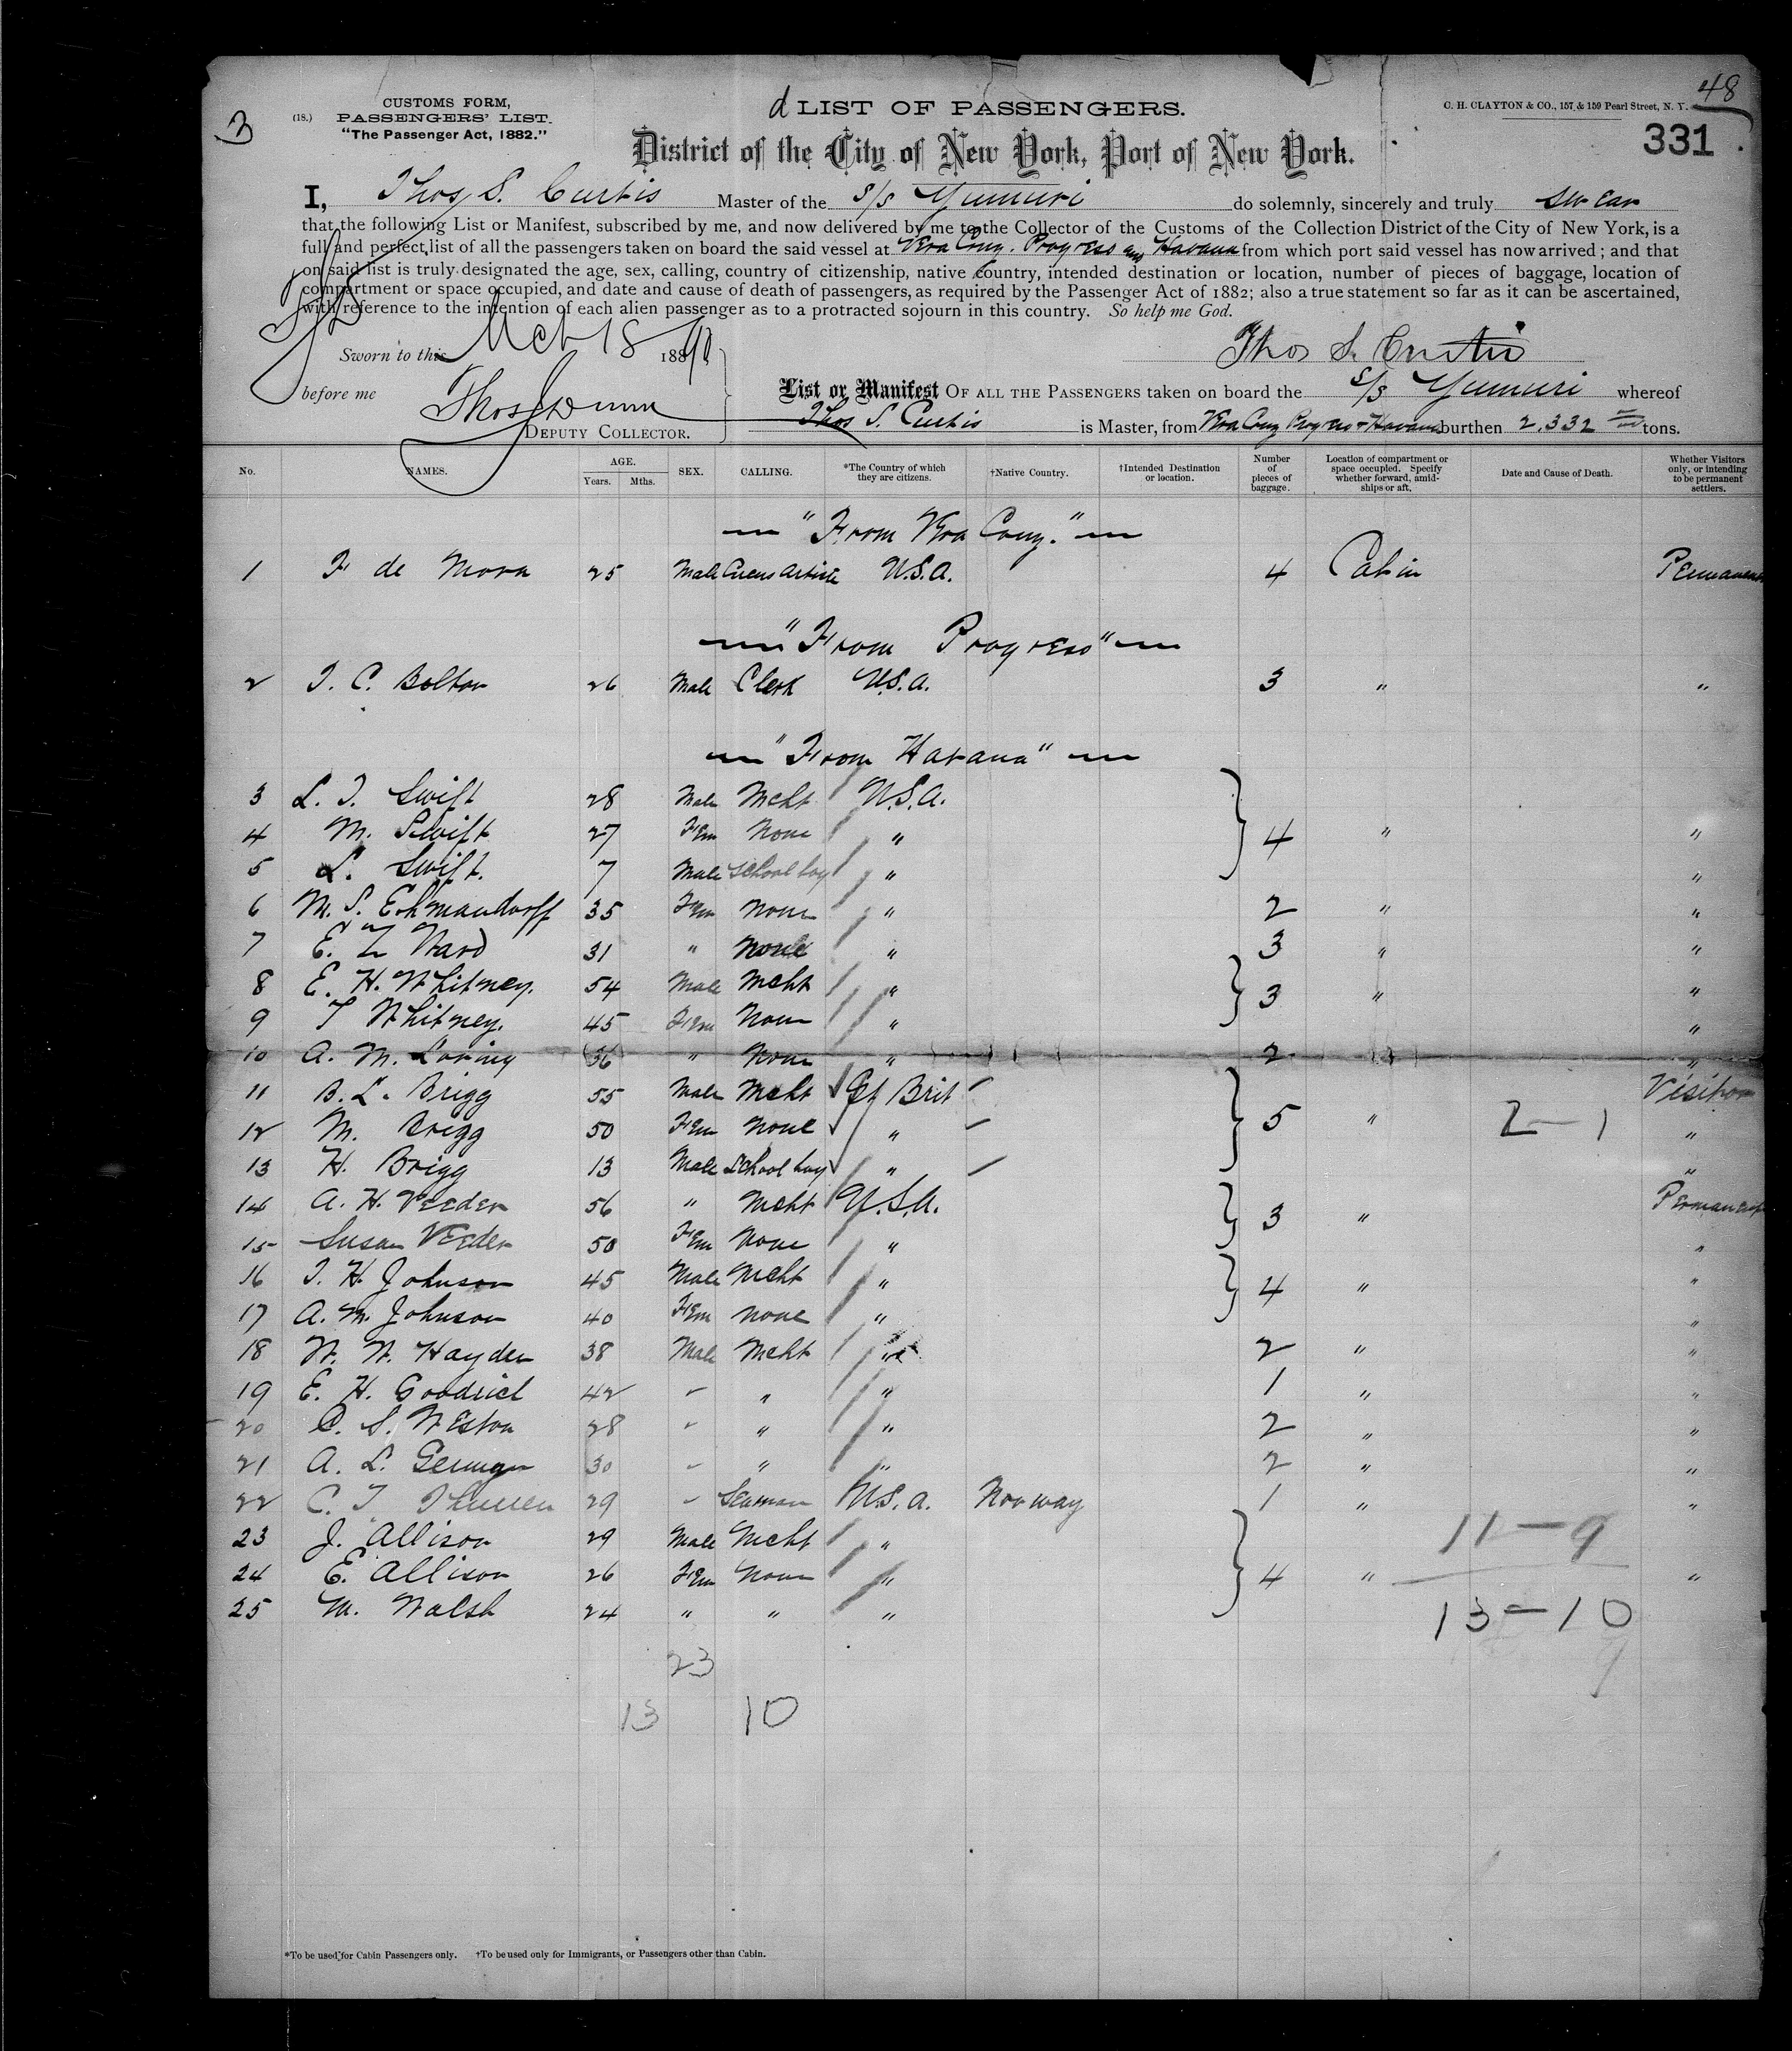 3
(18.)
CUSTOMS FORM,
PASSENGERS' LIST.
"The Passenger Act, 1882."
d LIST OF PASSENGERS.
C. H. CLAYTON & CO., 157 & 159 Pearl Street, N. Y.
48
331
District of the City of New York, Port of New York.
I, Thos. S. Curtis Master of the S/S Yumuri do solemnly, sincerely and truly swear
that the following List or Manifest, subscribed by me, and now delivered by me to the Collector of the Customs of the Collection District of the City of New York, is a
full and perfect list of all the passengers taken on board the said vessel at Vera Cruz. Progreso and Havana from which port said vessel has now arrived; and that
on said list is truly designated the age, sex, calling, country of citizenship, native country, intended destination or location, number of pieces of baggage, location of
compartment or space occupied, and date and cause of death of passengers, as required by the Passenger Act of 1882; also a true statement so far as it can be ascertained,
with reference to the intention of each alien passenger as to a protracted sojourn in this country. So help me God.
Sworn to this 18 188 90
Thos S. Curtis
before me Thos Dunn
DEPUTY COLLECTOR.
List or Manifest OF ALL THE PASSENGERS taken on board the S/S Yumuri whereof
Thos S. Curtis is Master, from Vera Cruz Progreso + Havana burthen 2.332 tons.
No. NAMES. AGE. Years. Mths. SEX. CALLING. *The Country of which they are citizens. †Native Country. †Intended Destination or location. Number of pieces of baggage. Location of compartment or space occupied. Specify whether forward, amidships or aft. Date and Cause of Death. Whether Visitors only, or intending to be permanent settlers.
"From Vera Cruz."
1 F de Mora 25 Male Circus Artiste U.S.A. 4 Cabin Permanent
"From Progreso"
2 T. C. Bolton 26 Male Clerk U.S.A. 3 " "
"From Havana"
3 L. T. Swift 28 Male Mcht U.S.A.
4 M. Swift 27 Fem None " 4 " "
5 L. Swift. 7 Male School boy " "
6 M. S. 35 Fem None " 2 " "
7 E. L Ward 31 " None " 3 " "
8 E. H. Whitney. 54 Male Mcht " 3 " "
9 T Whitney. 45 Fem None " "
10 A. M. Loring 36 " None " 2 " "
11 B. L. Brigg 55 Male Mcht Gt Brit Visitor
12 M. Brigg 50 Fem None " 5 " 2-1 "
13 H. Brigg 13 Male School boy " "
14 A. H. Veeder 56 " Mcht U.S.A. 3 " Permanent
15 Susan Veeder 50 Fem None " "
16 T. H. Johnson 45 Male Mcht " 4 " "
17 A. M. Johnson 40 Fem None " "
18 W. W. Hayden 38 Male Mcht " 2 " "
19 E. H. Goodrich 42 " " " 1 " "
20 C. S. Weston 28 " " " 2 " "
21 A. L. 30 " " " 2 " "
22 C. T. 29 " Seaman U.S.A. Norway 1 " "
23 J. Allison 29 Male Mcht " 11-9
24 E. Allison 26 Fem None " 4 " "
25 M. Walsh 24 " " " 13-10
9
23
13 10
*To be used for Cabin Passengers only. †To be used only for Immigrants, or Passengers other than Cabin.